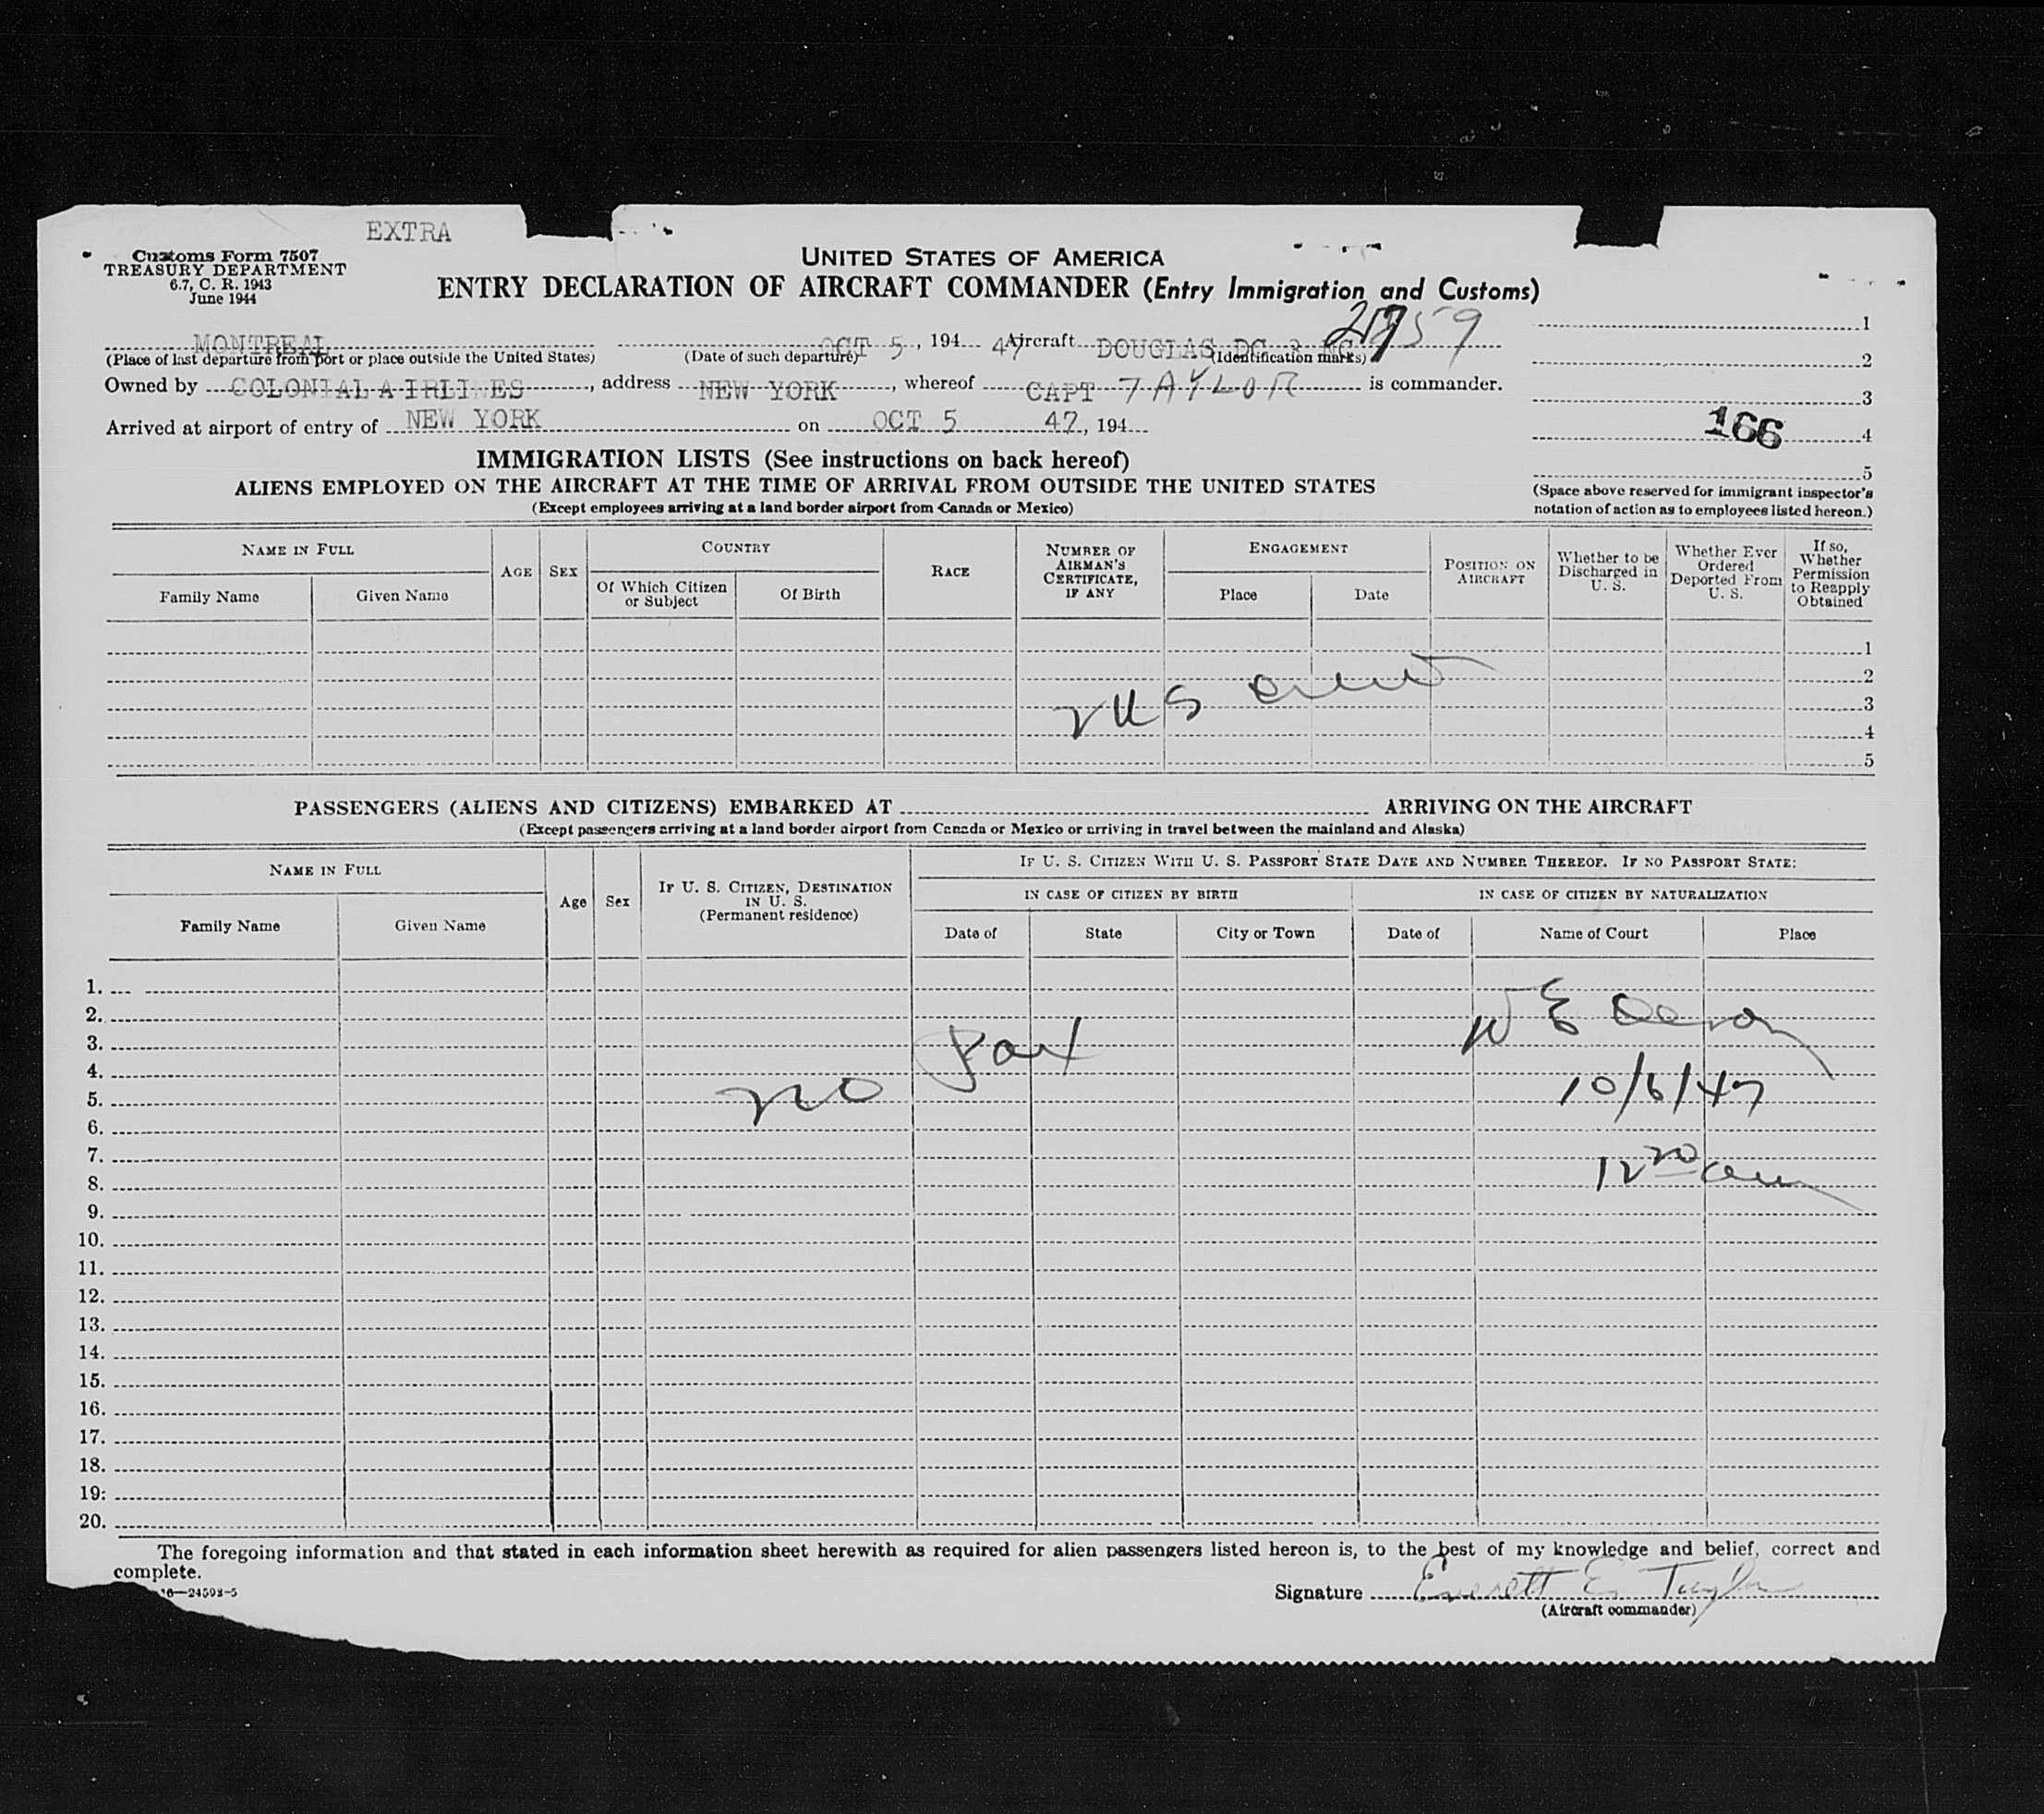 EXTRA
Customs Form 7507
TREASURY DEPARTMENT
6.7, C. R. 1943
June 1944
UNITED STATES OF AMERICA
ENTRY DECLARATION OF AIRCRAFT COMMANDER (Entry Immigration and Customs)
MONTREAL OCT 5, 194 47 Aircraft DOUGLAS DC 3 NC
(Place of last departure from port or place outside the United States) (Date of such departure) (Identification marks)
Owned by COLONIAL AIRLINES, address NEW YORK, whereof CAPT TAYLOR is commander.
Arrived at airport of entry of NEW YORK on OCT 5 47, 194
1
2
3
166 4
5
(Space above reserved for immigrant inspector's
notation of action as to employees listed hereon.)
IMMIGRATION LISTS (See instructions on back hereof)
ALIENS EMPLOYED ON THE AIRCRAFT AT THE TIME OF ARRIVAL FROM OUTSIDE THE UNITED STATES
(Except employees arriving at a land border airport from Canada or Mexico)
NAME IN FULL
Family Name
Given Name
AGE
SEX
COUNTRY
Of Which Citizen
or Subject
Of Birth
RACE
NUMBER OF
AIRMAN'S
CERTIFICATE,
IF ANY
ENGAGEMENT
Place
Date
POSITION ON
AIRCRAFT
Whether to be
Discharged in
U. S.
Whether Ever
Ordered
Deported From
U. S.
If so,
Whether
Permission
to Reapply
Obtained
1
2
3
4
5
PASSENGERS (ALIENS AND CITIZENS) EMBARKED AT ARRIVING ON THE AIRCRAFT
(Except passengers arriving at a land border airport from Canada or Mexico or arriving in travel between the mainland and Alaska)
NAME IN FULL
Family Name
Given Name
Age
Sex
IF U. S. CITIZEN, DESTINATION
IN U. S.
(Permanent residence)
IF U. S. CITIZEN WITH U. S. PASSPORT STATE DATE AND NUMBER THEREOF. IF NO PASSPORT STATE:
IN CASE OF CITIZEN BY BIRTH
IN CASE OF CITIZEN BY NATURALIZATION
Date of
State
City or Town
Date of
Name of Court
Place
1.
2.
3.
4.
5.
6.
7.
8.
9.
10.
11.
12.
13.
14.
15.
16.
17.
18.
19.
20.
no Pax
W E
10/6/47
12 20 am
The foregoing information and that stated in each information sheet herewith as required for alien passengers listed hereon is, to the best of my knowledge and belief, correct and
complete.
16—24593-5
Signature Everett E. Taylor
(Aircraft commander)